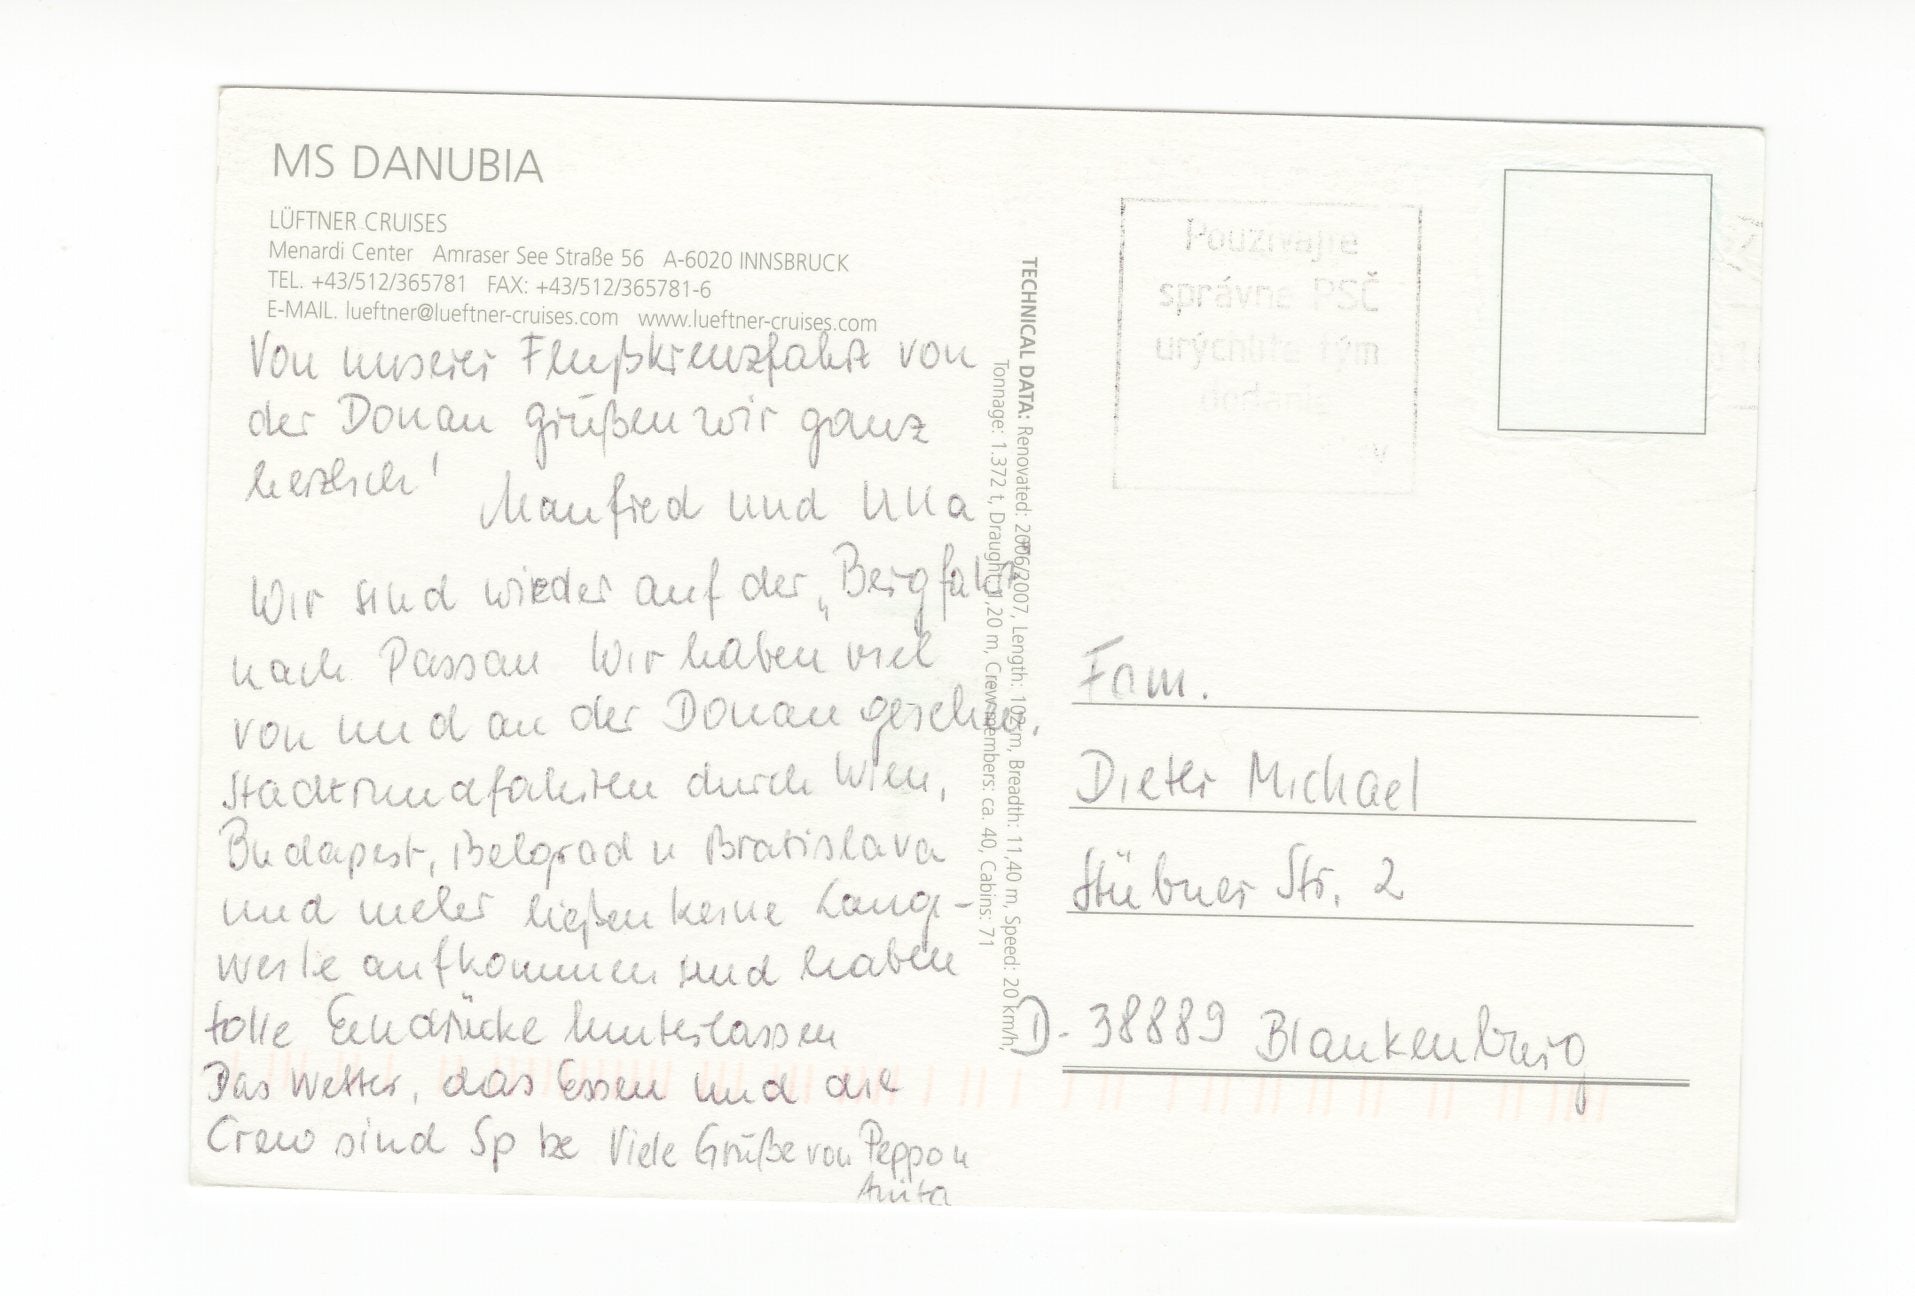 MS DANUBIA
LÜFTNER CRUISES
Menardi Center Amraser See Straße 56 A-6020 INNSBRUCK
TEL. +43/512/365781 FAX: +43/512/365781-6
E-MAIL. lueftner@lueftner-cruises.com www.lueftner-cruises.com
Von unserer Flußkreuzfahrt von
der Donau grüßen wir ganz
herzlich!
Manfred und Ulla
Wir sind wieder auf der „Bergfahrt"
nach Passau Wir haben viel
von und an der Donau gesehen.
Stadtrundfahrten durch Wien,
Budapest, Belgrad u Bratislava
und mehr ließen keine Lang-
weile aufkommen und haben
tolle Eindrücke hinterlassen
Das Wetter, das Essen und die
Crew sind Spitze Viele Grüße von Peppo u
Anita
TECHNICAL DATA: Renovated: 2006/2007, Length: 102 m, Breadth: 11,40 m, Speed: 20 km/h,
Tonnage: 1.372 t, Draught: 1,20 m, Crewmembers: ca. 40, Cabins: 71
Používajte
správne PSČ
urýchlite tým
dodanie
Fam.
Dieter Michael
Stübner Str. 2
D-38889 Blankenburg